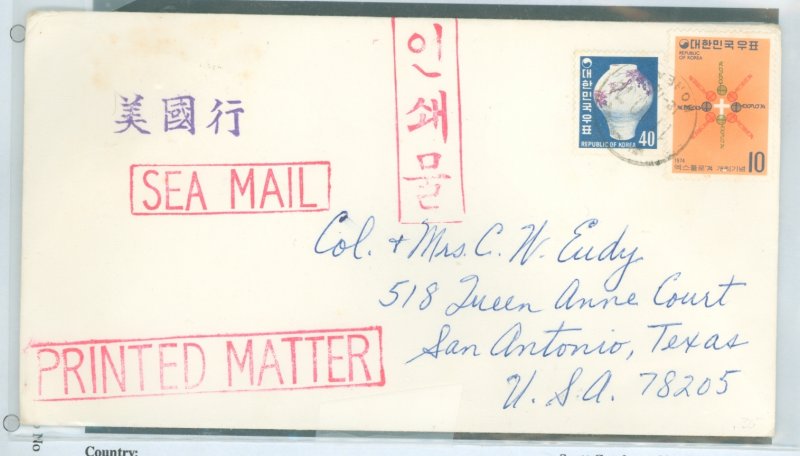 美國行
SEA MAIL
인쇄물
PRINTED MATTER
대한민국우표
REPUBLIC OF KOREA
40
대한민국우표
REPUBLIC
OF KOREA
1974
10
엑스플로74 개최기념
Col. & Mrs. C. W. Eudy
518 Queen Anne Court
San Antonio, Texas
U.S.A. 78205
No
Country: